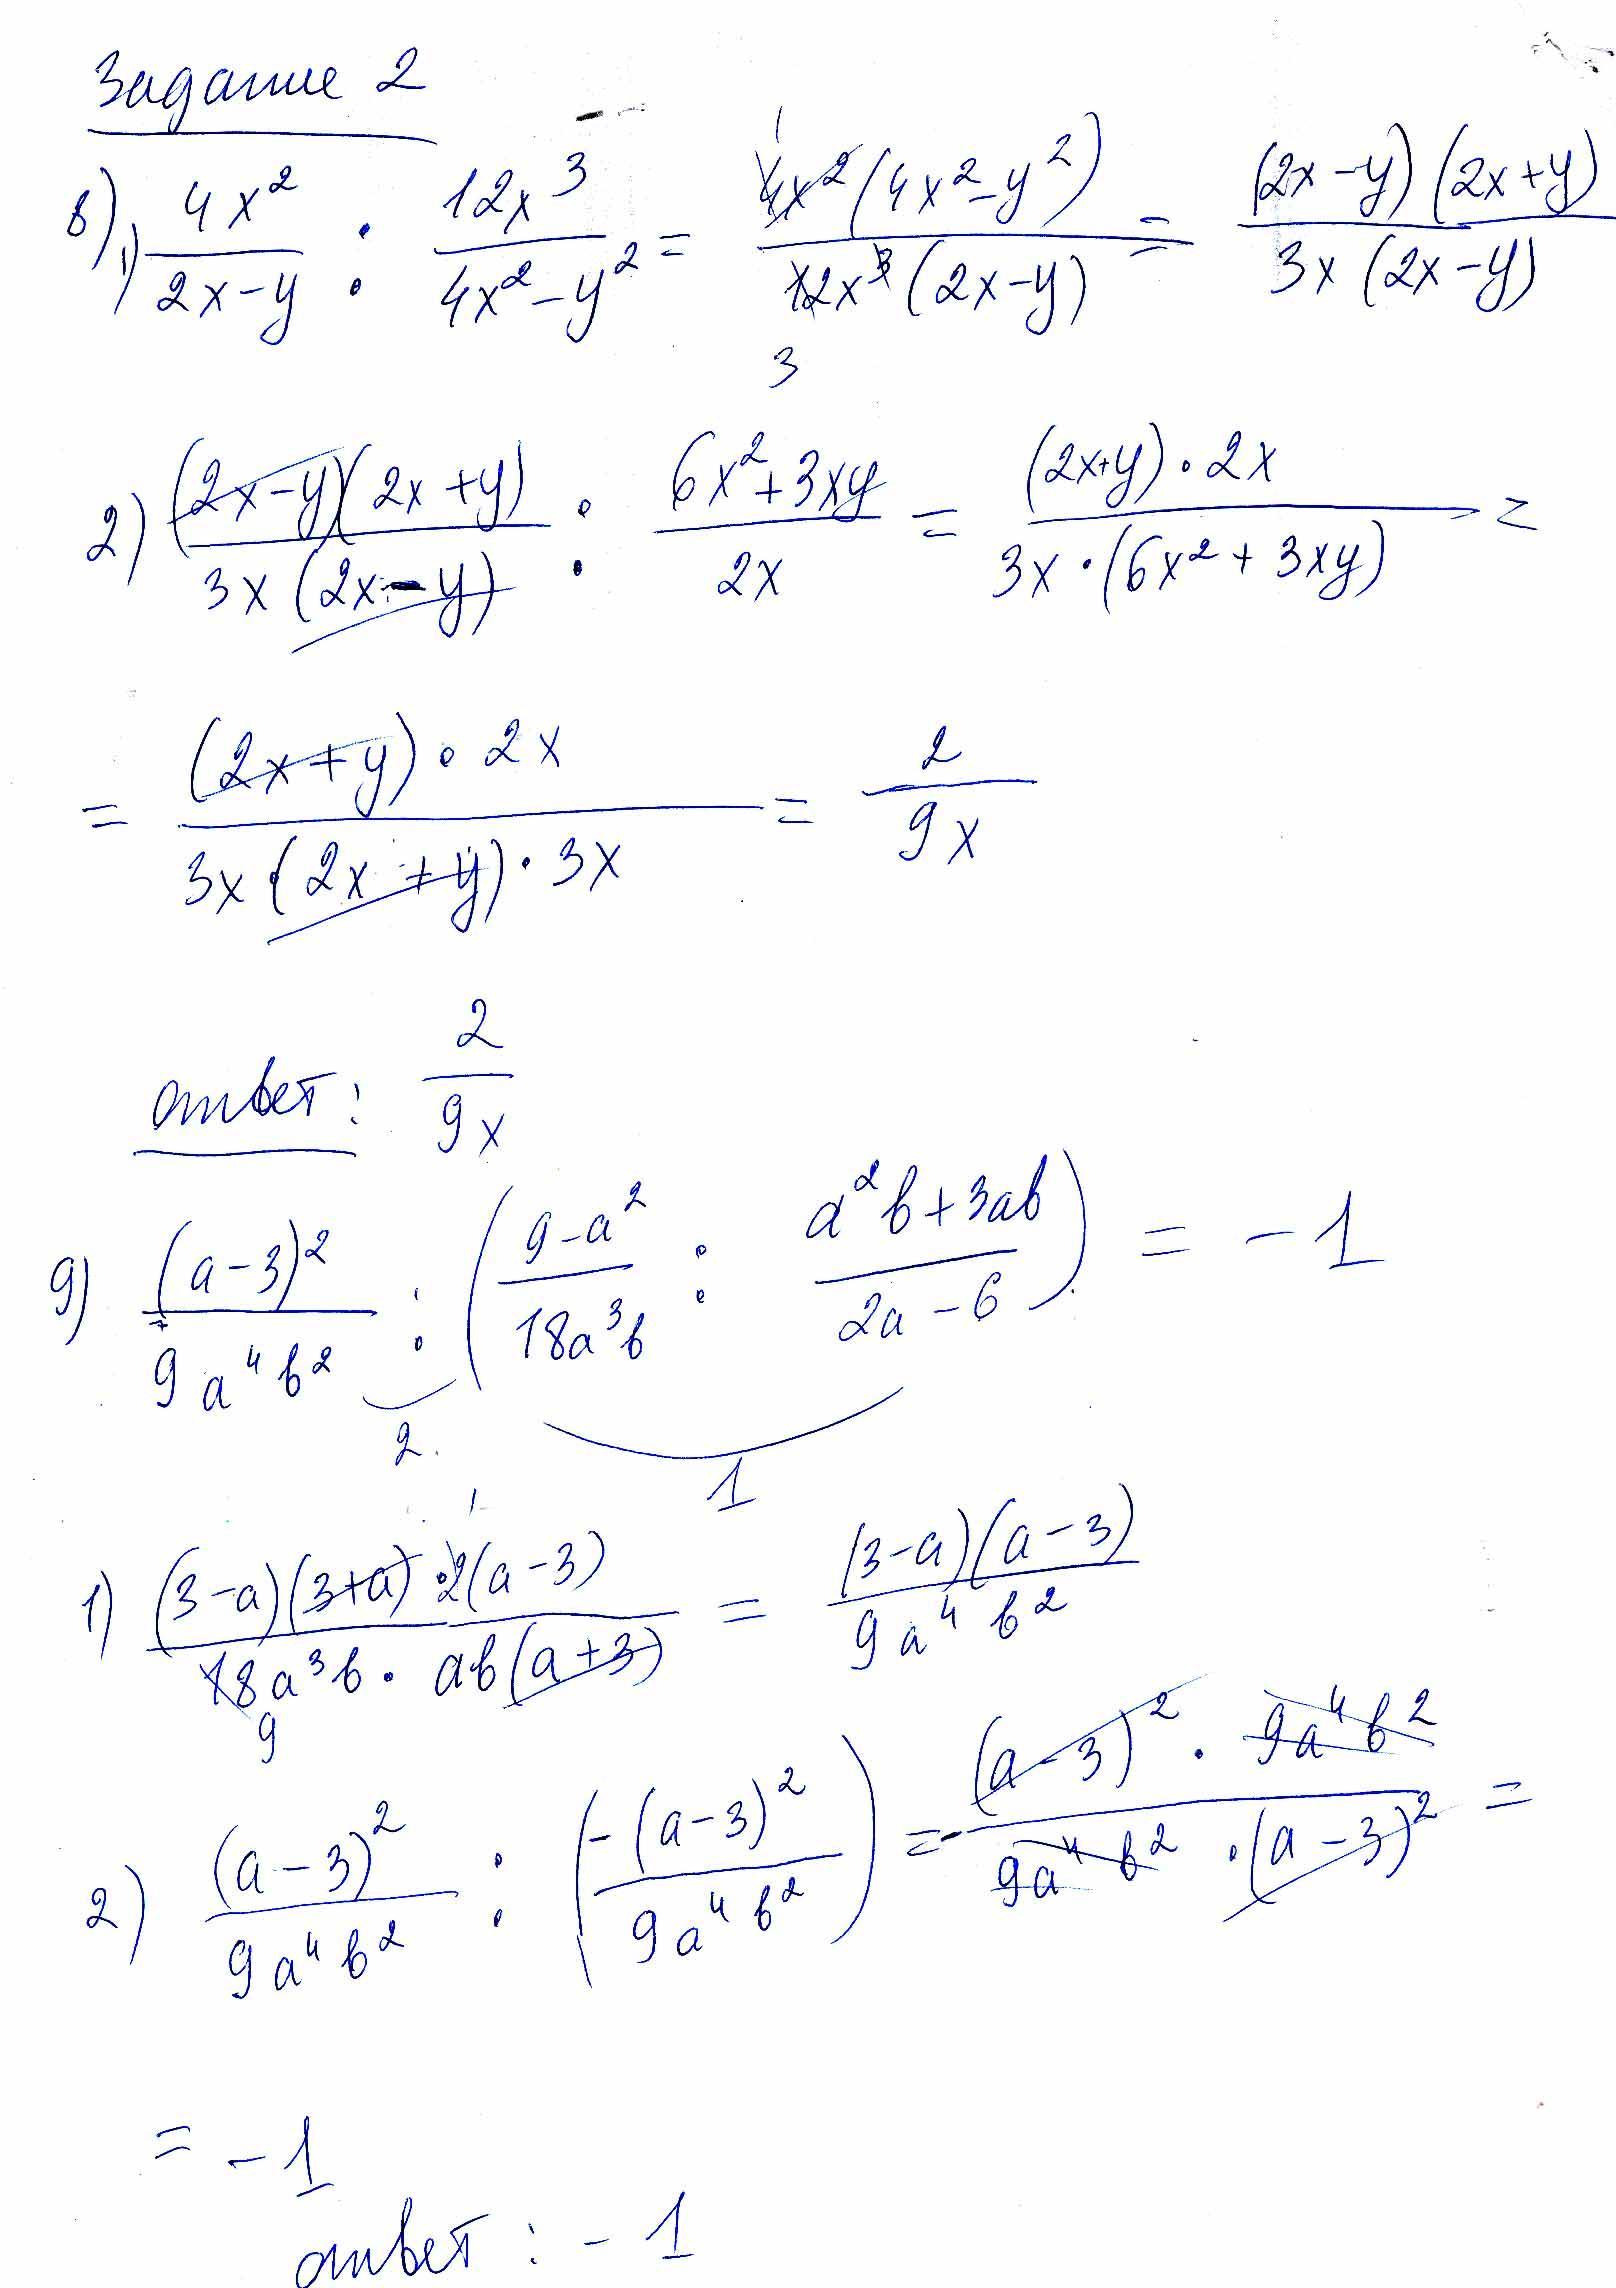 Задание 2
в) 1) 4x²/(2x-y) : 12x³/(4x²-y²) = 4x²(4x²-y²)/(12x³(2x-y)) = (2x-y)(2x+y)/(3x(2x-y))
1
3
2) (2x-y)(2x+y)/(3x(2x-y)) : (6x²+3xy)/(2x) = (2x+y)·2x/(3x·(6x²+3xy)) =
= (2x+y)·2x/(3x·(2x+y)·3x) = 2/(9x)
ответ: 2/(9x)
g) (a-3)²/(9a⁴b²) : ((9-a²)/(18a³b) : (a²b+3ab)/(2a-6)) = -1
2. 1
1) (3-a)(3+a)·2(a-3)/(18a³b·ab(a+3)) = (3-a)(a-3)/(9a⁴b²)
1
9
2) (a-3)²/(9a⁴b²) : (-(a-3)²/(9a⁴b²)) = -(a-3)²·9a⁴b²/(9a⁴b²·(a-3)²) =
= -1
ответ: -1